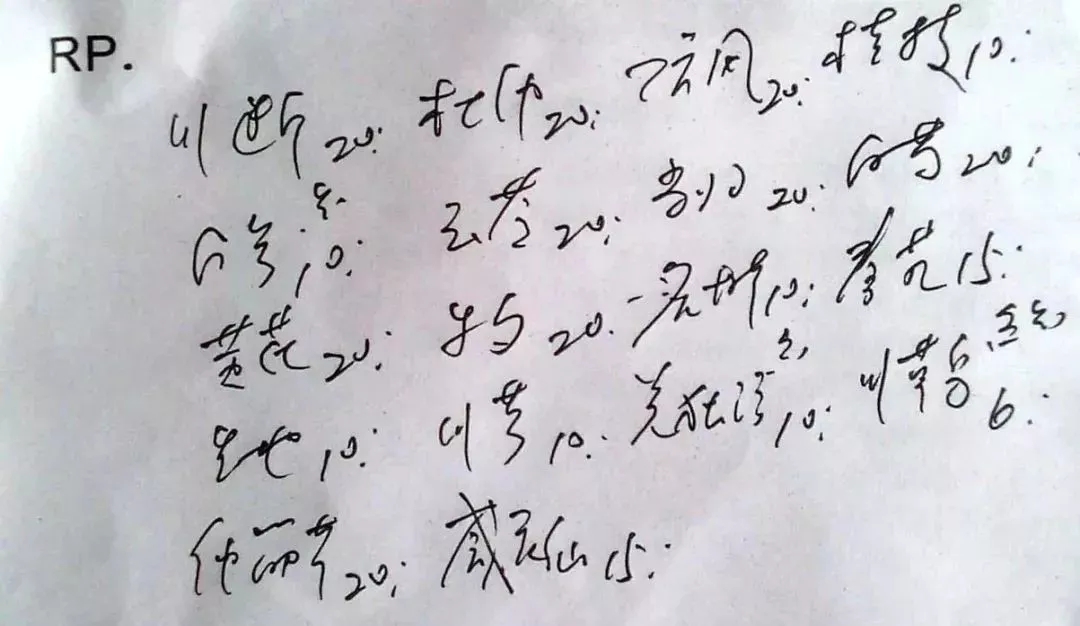 RP.
川断20; 杜仲20; 防风20; 桂枝10;
白 10; 云苓20; 当归20; 白芍20;
黄芪20; 牛夕20. 10; 秦艽15;
生地10; 川芎10. 羌独活各10; 川草乌 6;
伸筋草20; 威灵仙15;